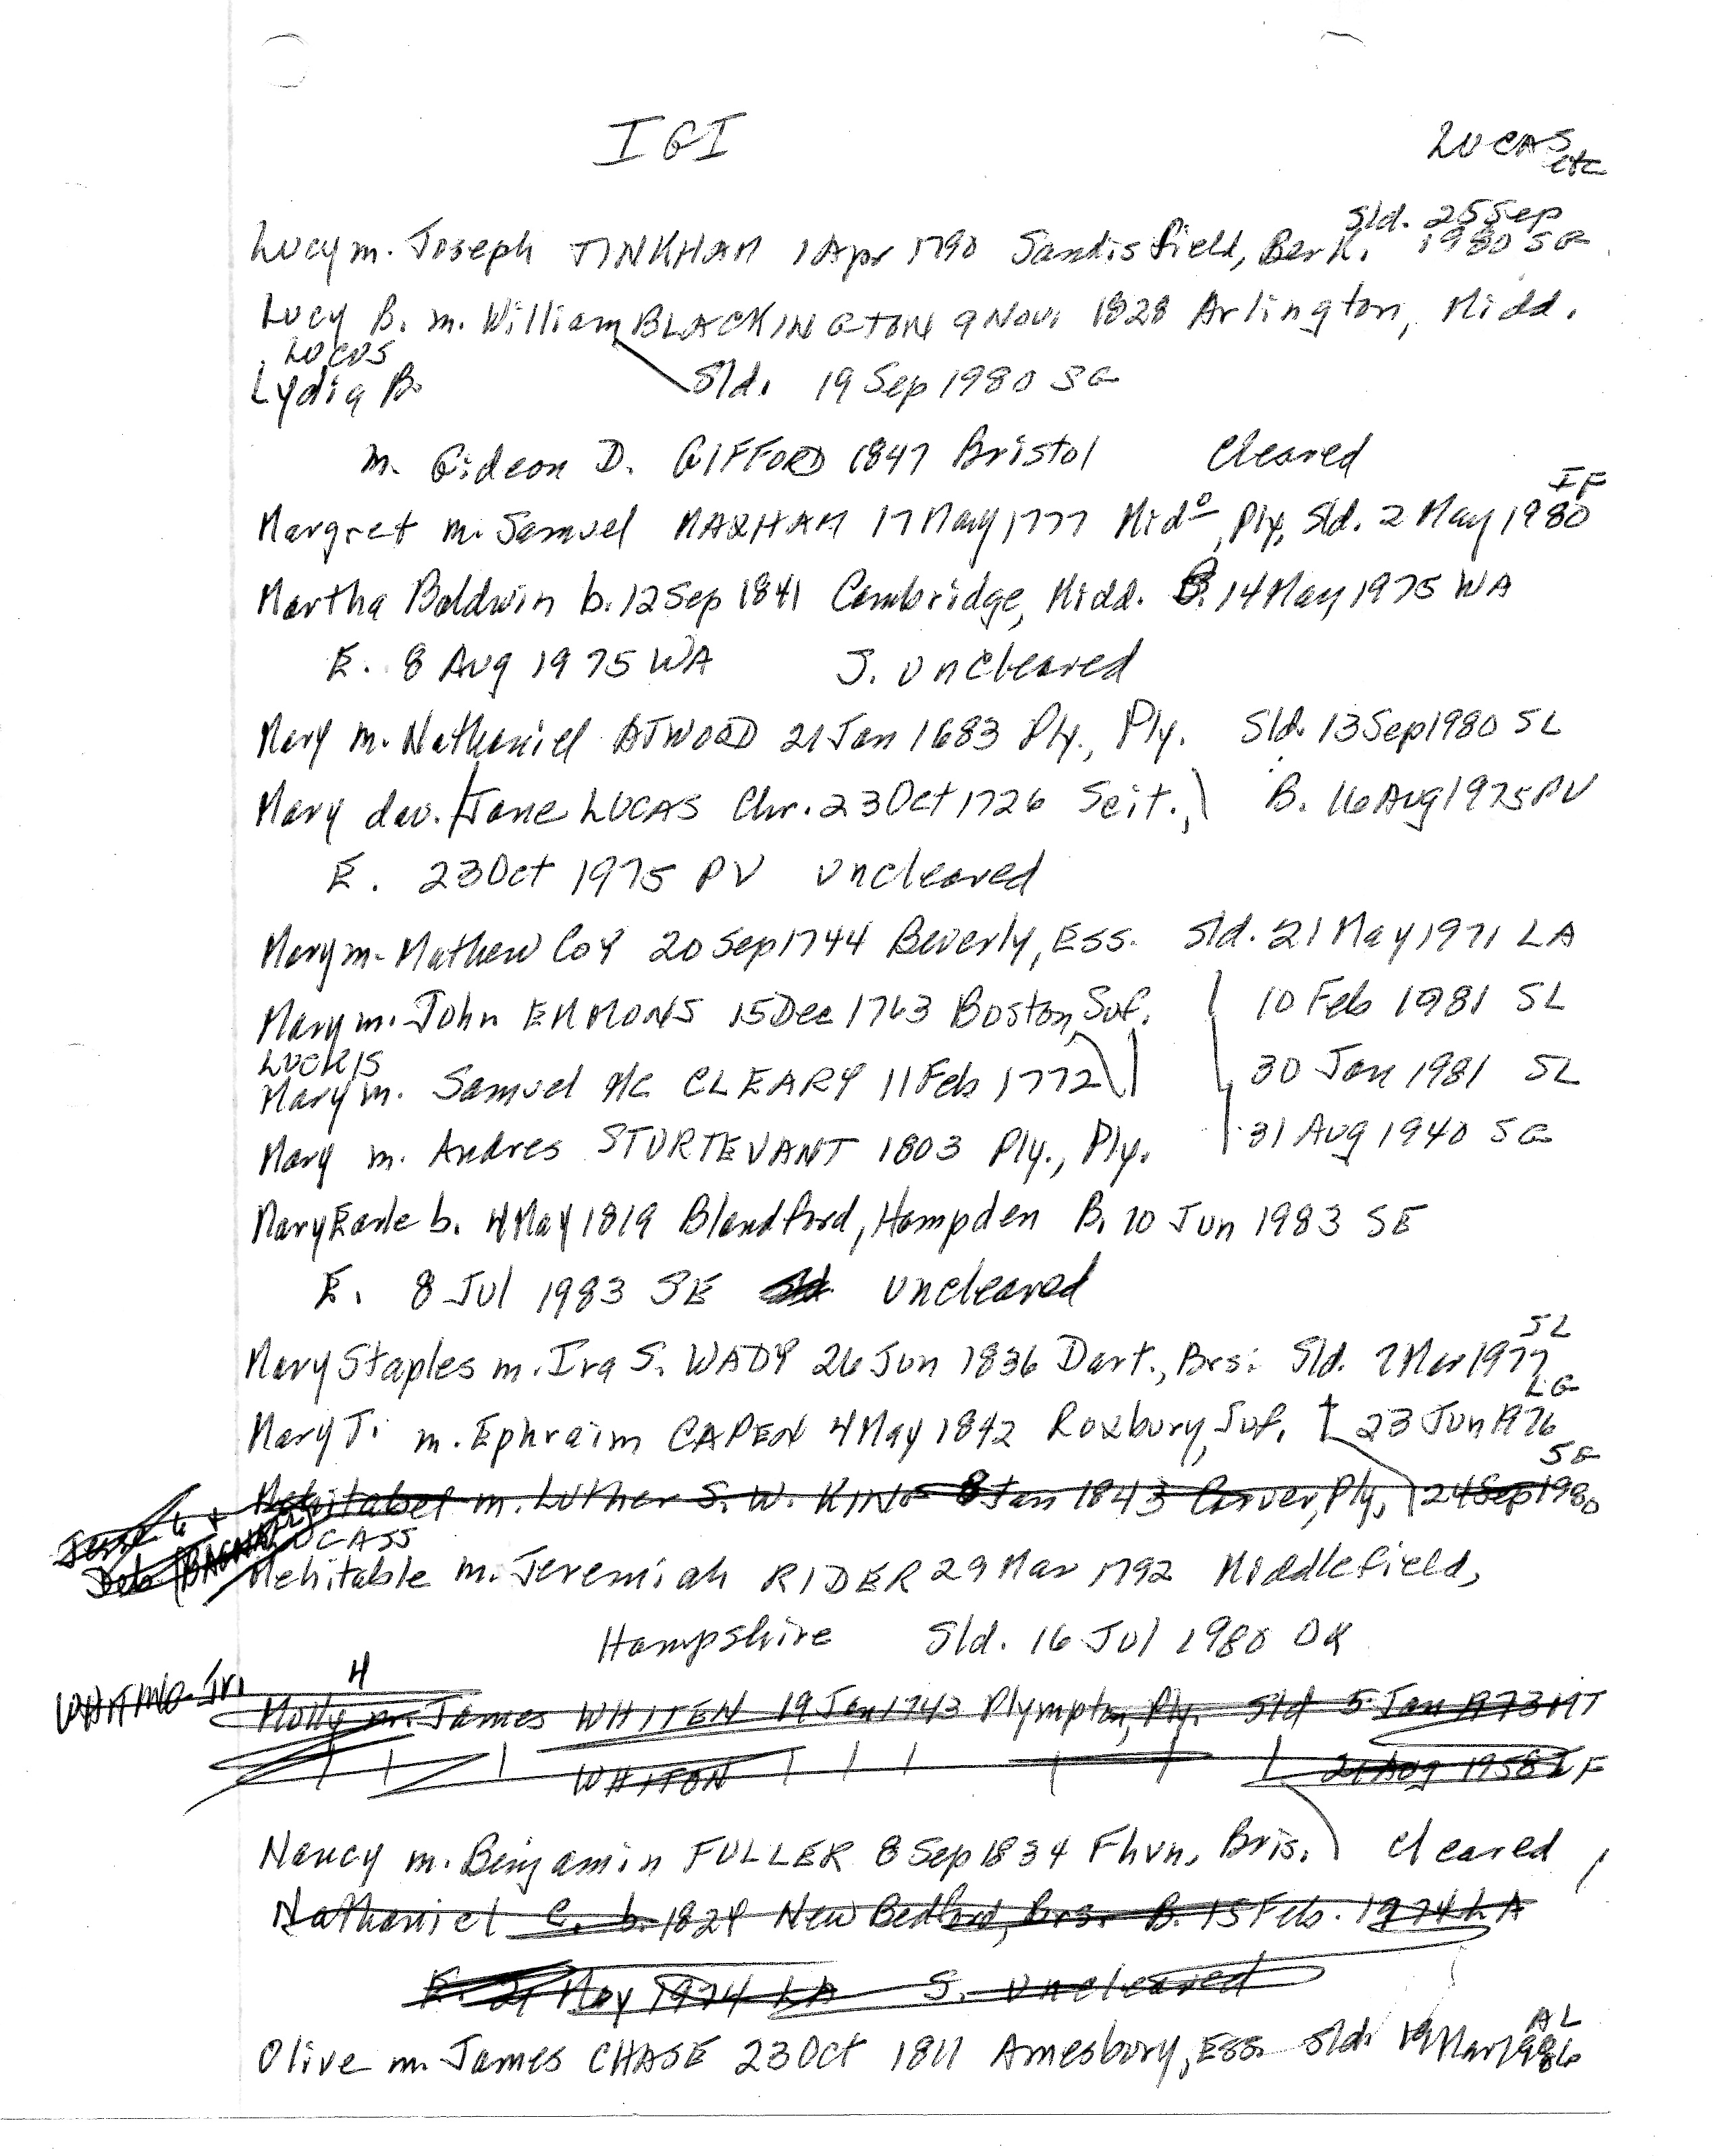 IGI
LUCAS etc
Sld. 25 Sep
Lucy m. Joseph TINKHAM 1 Apr 1790 Sandisfield, Berk. 1980 SG
Lucy B. m. William BLACKINGTON 9 Nov. 1828 Arlington, Midd.
LUCUS
Lydia B. Sld. 19 Sep 1980 SG
m. Gideon D. GIFFORD 1847 Bristol Cleared
IF
Margret m. Samuel MARHAM 17 May 1777 Mido, Ply, Sld. 2 May 1980
Martha Baldwin b. 12 Sep 1841 Cambridge, Midd. B. 14 May 1975 WA
E. 8 Aug 1975 WA S. uncleared
Mary m. Nathaniel ATWOOD 21 Jan 1683 Ply., Ply. Sld. 13 Sep 1980 SL
Mary dau. /Jane LUCAS Chr. 23 Oct 1726 Scit., B. 16 Aug 1975 PV
E. 23 Oct 1975 PV uncleared
Mary m. Mathew COY 20 Sep 1744 Beverly, Ess. Sld. 21 May 1971 LA
Mary m. John EMMONS 15 Dec 1763 Boston, Suf. 10 Feb 1981 SL
LUCKIS
Mary m. Samuel Mc CLEARY 11 Feb 1772 30 Jan 1981 SL
Mary m. Andres STURTEVANT 1803 Ply., Ply. 31 Aug 1940 SG
Mary Earle b. 4 May 1819 Blandford, Hampden B. 10 Jun 1983 SE
E. 8 Jul 1983 SE uncleared
SL
Mary Staples m. Ira S. WADY 26 Jun 1836 Dart., Brs: Sld. 7 Mar 1977
LG
Mary T. m. Ephraim CAPEN 4 May 1842 Roxbury, Suf. 23 Jun 1976
SG
Mehitabel m. Luther S. W. KING 8 Jan 1843 Carver, Ply, 24 Sep 1980
LUCASS
Mehitable m. Jeremiah RIDER 29 Mar 1792 Middlefield,
Hampshire Sld. 16 Jul 1980 OK
4
WHITING Jr.
Molly m. James WHITEN 19 Jan 1743 Plympton, Ply. Sld 5 Jan 1973 MT
WHITON 21 Aug 1958 IF
Nancy m. Benjamin FULLER 8 Sep 1834 Fhvn, Bris. cleared
Nathaniel C. b. 1824 New Bedford, Brs. B. 15 Feb. 1974 LA
E. 21 May 1974 LA S. uncleared
AL
Olive m. James CHASE 23 Oct 1811 Amesbury, Ess. Sld. 19 Mar 1986